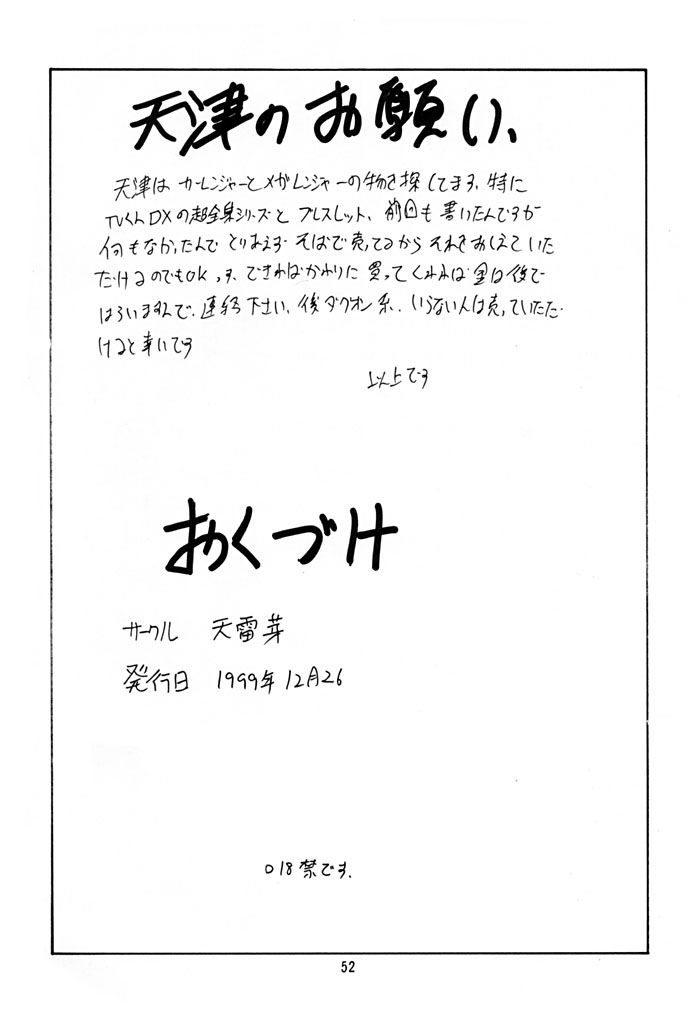 天津のお願い、
天津は カーレンジャーとメガレンジャーの物を探してます、特に
TVくんDXの超全集シリーズと ブレスレット、前回も書いたんですが
何もなかったんで とりあえず そばで売ってるから それをおしえていた
だけるのでもOKっす、できればかわりに 買ってくれれば 金は後で
はらいますんで、連絡下さい、後ダグオン系、いらない人は売っていただ
けると幸いです
以上です
おくづけ
サークル 天雷芽
発行日 1999年12月26
○18禁です、
52